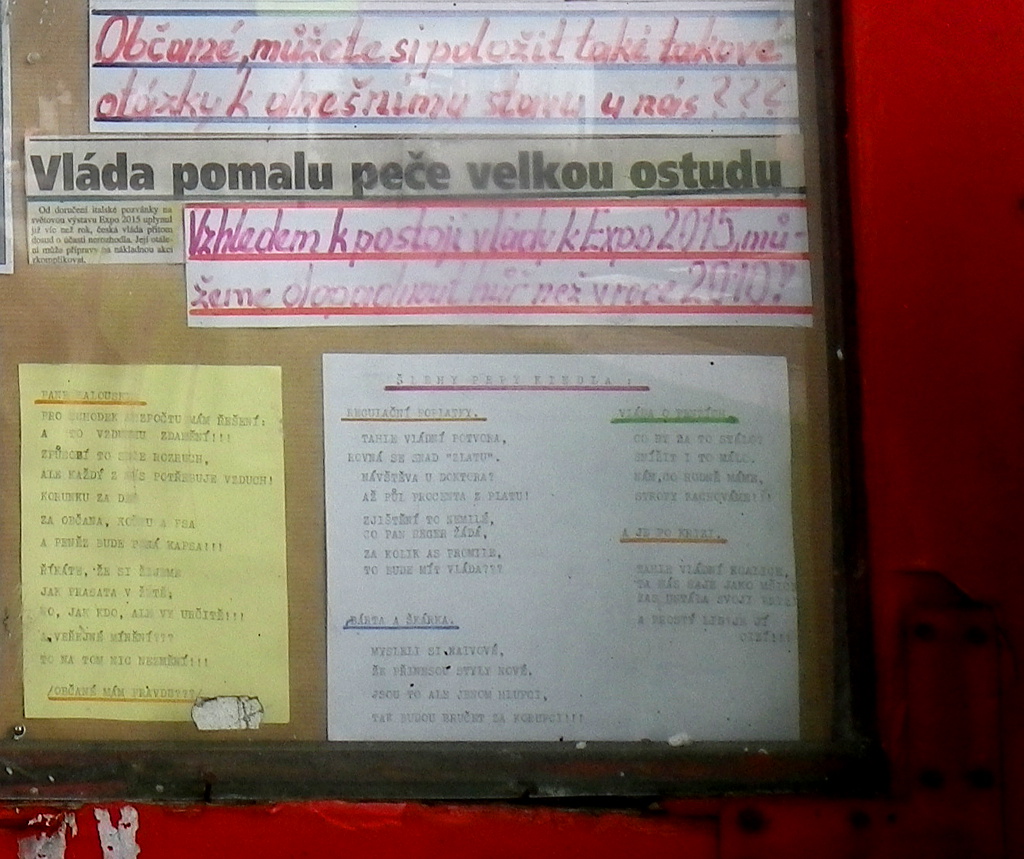 Občané, můžete si položit také takové
otázky k dnešnímu stavu u nás???
Vláda pomalu peče velkou ostudu
Od doručení italské pozvánky na
světovou výstavu Expo 2015 uplynul
již víc než rok, česká vláda přitom
dosud o účasti nerozhodla. Její otále-
ní může přípravy na nákladnou akci
zkomplikovat.
Vzhledem k postoji vlády k Expo 2015 mů-
žeme dopadnout hůř než v roce 2010?
PANE KALOUSKU
PRO SCHODEK ROZPOČTU MÁM ŘEŠENÍ:
A TO VZDUCHU ZDANĚNÍ!!!
ZPŮSOBÍ TO ROZRUCH,
ALE KAŽDÝ Z NÁS POTŘEBUJE VZDUCH!
KORUNKU ZA DEN
ZA OBČANA, KOČKU A PSA
A PENĚZ BUDE PLNÁ KAPSA!!!
ŘÍKÁTE, ŽE SI ŽIJEME
JAK PRASATA V ŽITĚ;
NO, JAK KDO, ALE VY URČITĚ!!!
A VEŘEJNÉ MÍNĚNÍ???
TO NA TOM NIC NEZMĚNÍ!!!
/OBČANÉ MÁM PRAVDU???/
ŠLEHY PEPY :
REGULAČNÍ POPLATKY.
TAHLE VLÁDNÍ POTVORA,
ROVNÁ SE SNAD "ZLATU".
NÁVŠTĚVA U DOKTORA?
AŽ PŮL PROCENTA Z PLATU!
ZJIŠTĚNÍ TO NEMILÉ,
CO PAN HEGER ŽÁDÁ,
ZA KOLIK AS PROMILE,
TO BUDE MÍT VLÁDA???
BÁRTA A ŠKÁRKA.
MYSLELI SI NAIVOVÉ,
ŽE PŘINESOU STYLY NOVÉ.
JSOU TO ALE JENOM HLUPCI,
TAK BUDOU BRUČET ZA KORUPCI!!!
VLÁDA O PENZÍCH.
CO BY ZA TO STÁLO?
SNÍŽIT I TO MÁLO.
NÁM, CO HODNĚ MÁME,
STROPY ZACHOVÁME!!!
A JE PO KRIZI.
TAHLE VLÁDNÍ KOALICE,
TA NÁS SAJE JAKO
ZAS USTÁLA SVOJI
A PROSTÝ LID JE JÍ
CIZÍ!!!